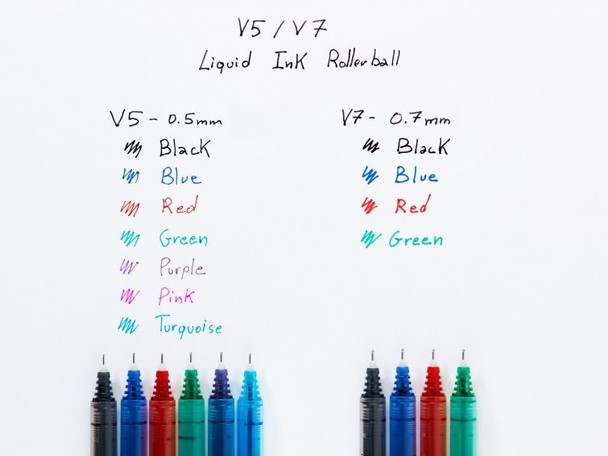 V5 / V7
Liquid Ink Rollerball
V5 - 0.5mm
Black
Blue
Red
Green
Purple
Pink
Turquoise
V7 - 0.7mm
Black
Blue
Red
Green